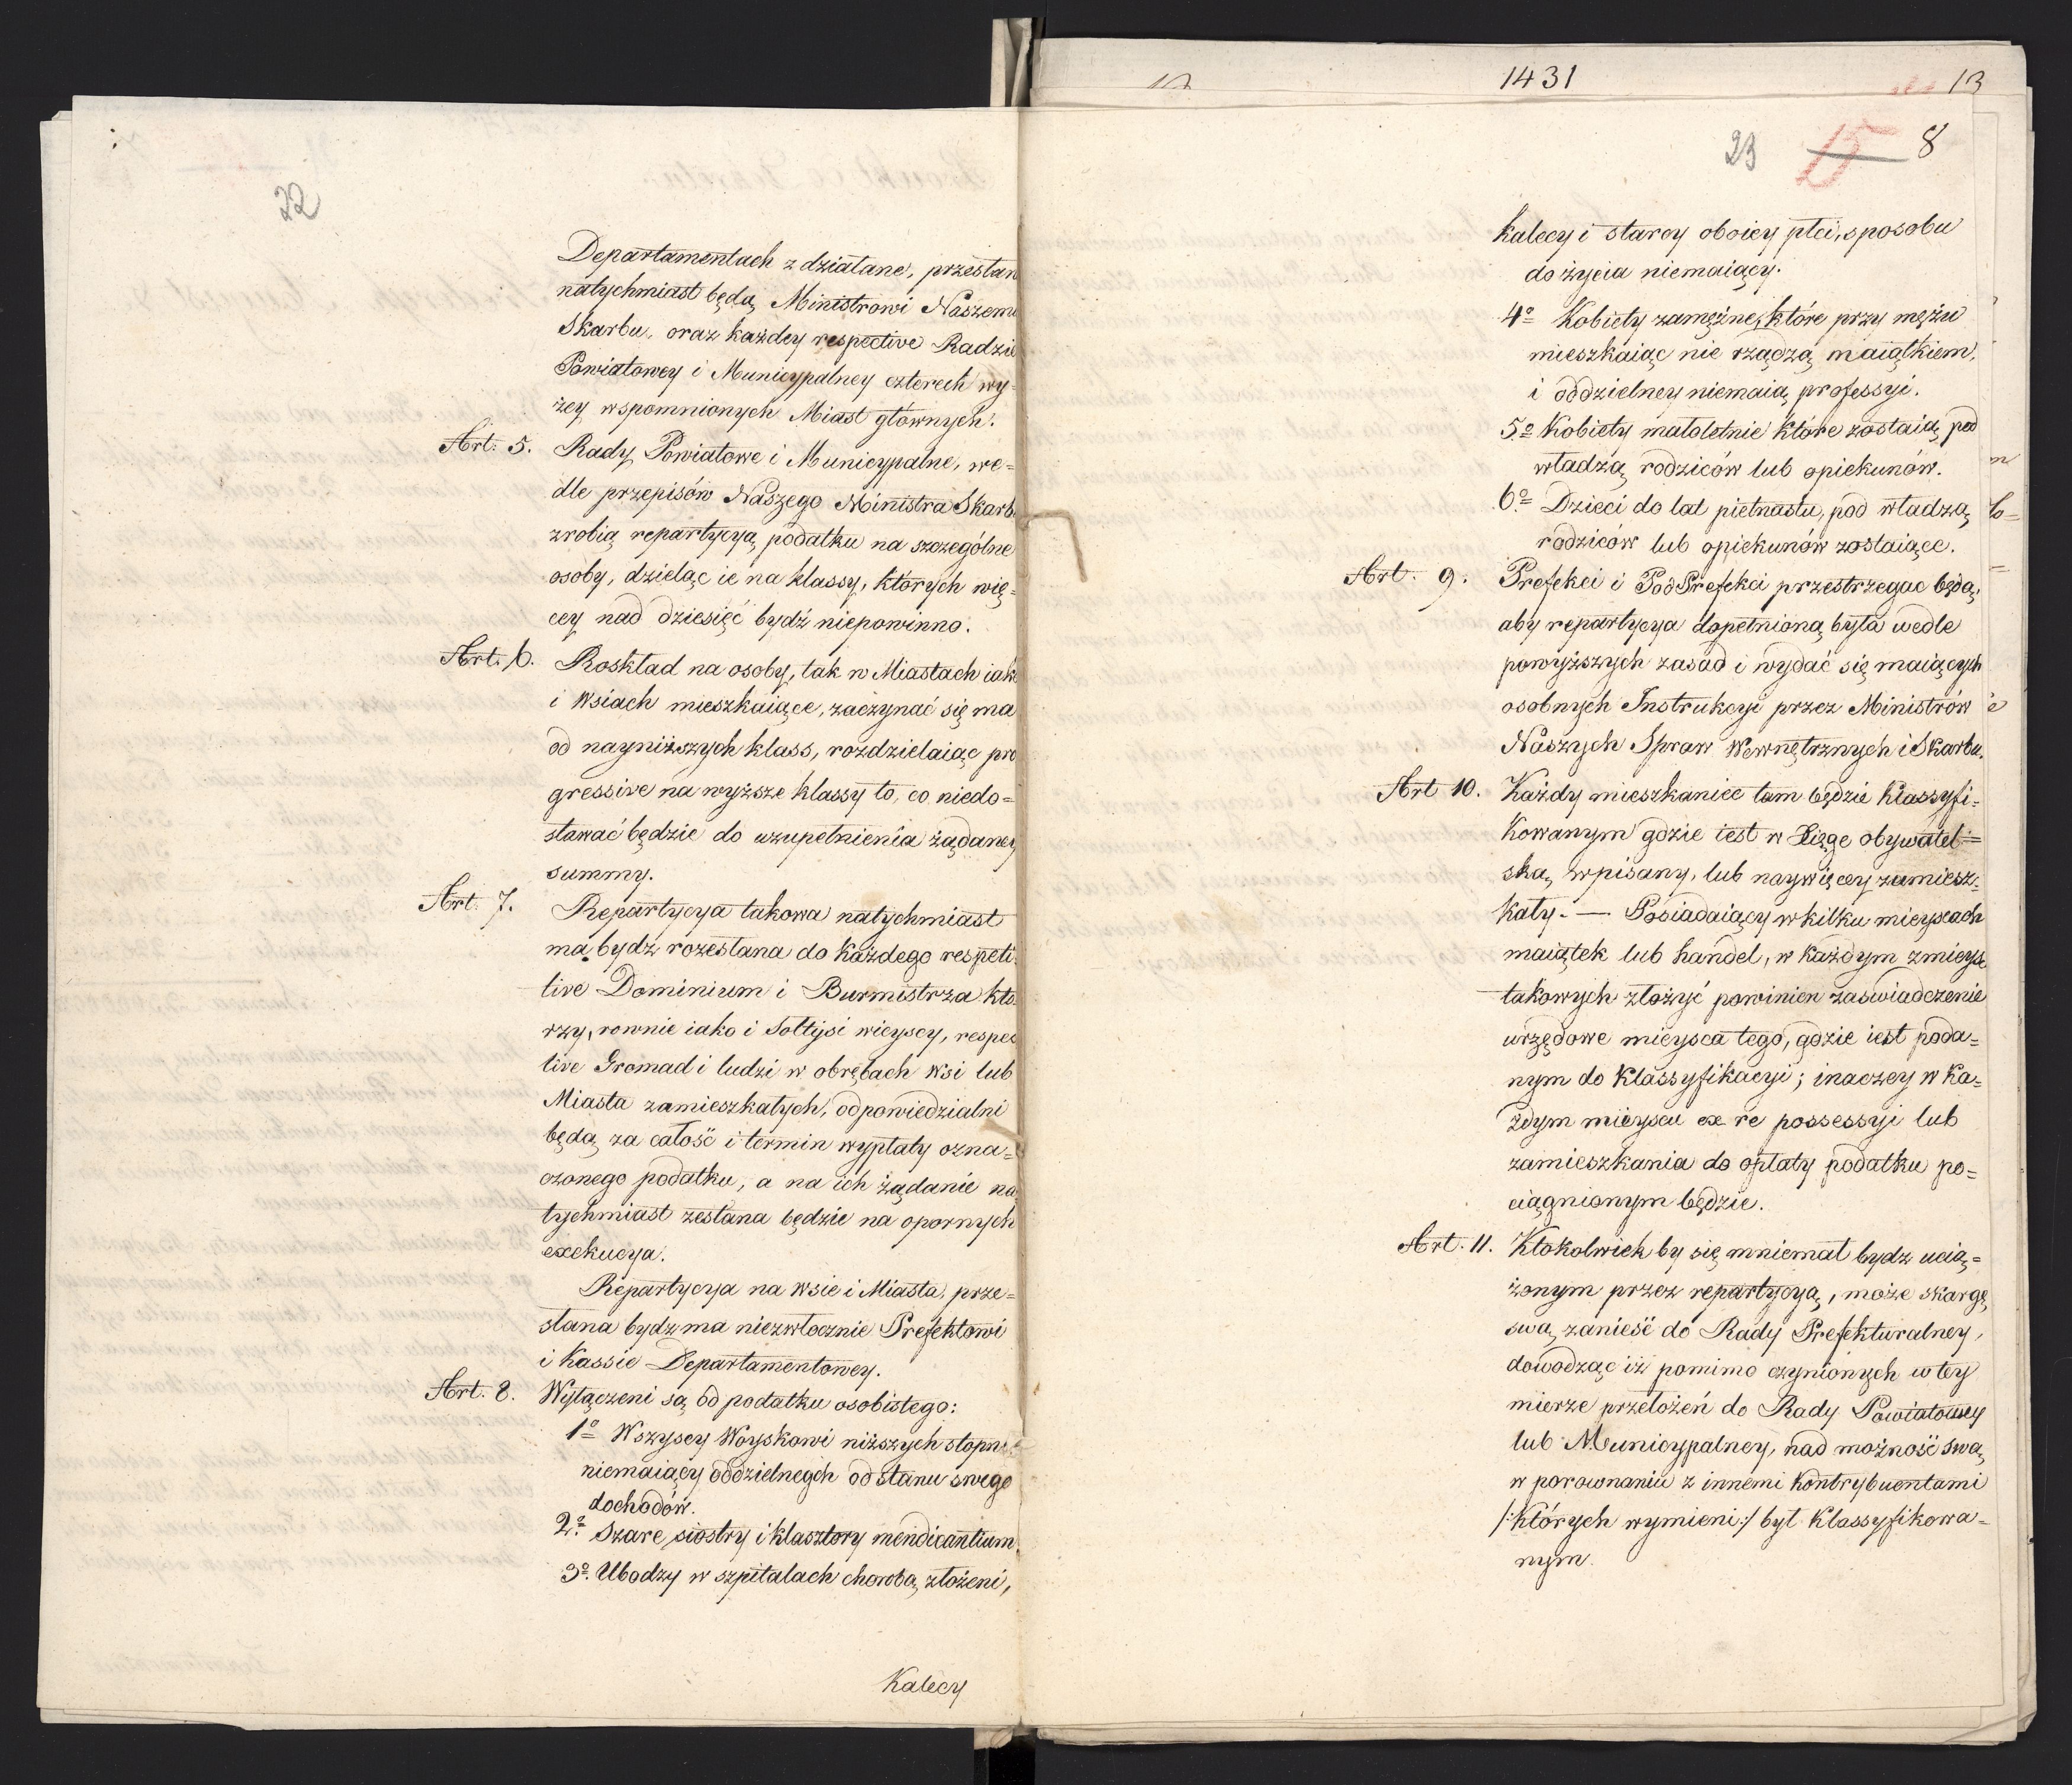 22
Departamentach z działane, przesłan
natychmiast będą Ministrowi Naszemu
Skarbu, oraz każdey respective Radzie
Powiatowey i Municypalney czterech wy-
żey wspomnionych Miast głównych.
Art. 5. Rady Powiatowe i Municypalne, we=
dle przepisów Naszego Ministra Skarb
zrobią repartycyą podatku na szczególne
osoby, dzieląc ie na klassy, których wię=
cey nad dziesięć bydź niepowinno.
Art. 6. Roskład na osoby, tak w Miastach iako
i Wsiach mieszkaiące, zaczynać się ma
od nayniższych klass, rozdzielaiąc pro
gressive na wyższe klassy to, co niedo=
stawać będzie do uzupełnienia żądaney
summy.
Art. 7. Repartycya takowa natychmiast
ma bydz rozesłana do każdego respeti
tive Dominium i Burmistrza kto
rzy, rownie iako i Sołtysi wieyscy, respec
tive Gromad i ludzi w obrębach wsi lub
Miasta zamieszkałych, odpowiedzialni
będą za całość i termin wypłaty ozna=
czonego podatku, a na ich żądanie na
tychmiast zesłana będzie na opornych
exekucya.
Repartycya na wsie i Miasta, prze=
słana bydz ma niezwłocznie Prefektowi
i Kassie Departamentowey.
Art. 8. Wyłączeni są od podatku osobistego:
1o Wszyscy Woyskowi niższych stopni
niemaiący oddzielnegch od stanu swego
dochodów.
2o. Szare siostry i klasztory mendicantium.
3o. Ubodzy w szpitalach chorobą złożeni,
Kalecy
1431
13
23 15 8
kalecy i starcy oboiey płci, sposobu
do życia niemaiący.
4o Kobiety zamężne, które przy mężu
mieszkaiąc nie rządzą maiątkiem,
i oddzielney niemaią professyi.
5o Kobiety małoletnie które zostaią pod
władzą rodziców lub opiekunów.
6o Dzieci do lat pietnastu, pod władzą
rodziców lub opiekunów zostaiące.
Art. 9. Prefekci i PodPrefekci przestrzegac będą,
aby repartycya dopełnioną była wedle
powyższych zasad i wydać się maiących
osobnych Instrukcyi przez Ministrów
Naszych Spraw Wewnętrznych i Skarbu.
Art 10. Każdy mieszkaniec tam będzie klassyfi=
kowanym gdzie iest w Xięge obywatel=
ską wpisany, lub naywięcey zamiesz=
kały. — Posiadaiący w kilku mieyscach
maiątek lub handel, w każdym z mieysc
takowych złożyć powinien zaswiadczenie
urzędowe mieysca tego, gdzie iest poda=
nym do klassyfikacyi; inaczey w ka=
żdym mieyscu ex re possessyi lub
zamieszkania do opłaty podatku po=
ciągnionym będzie.
Art. 11. Ktokolwiek by się mniemał bydz ucią=
żonym przez repartycyą, może skargę
swą zanieść do Rady Prefekturalney,
dowodząc iż pomimo czynionych w tey
mierze przełożeń do Rady Powiatowey
lub Municypalney, nad możność swą
w porownaniu z innemi kontrybuentami
/:których wymieni:/ był klassyfikowa=
nym.